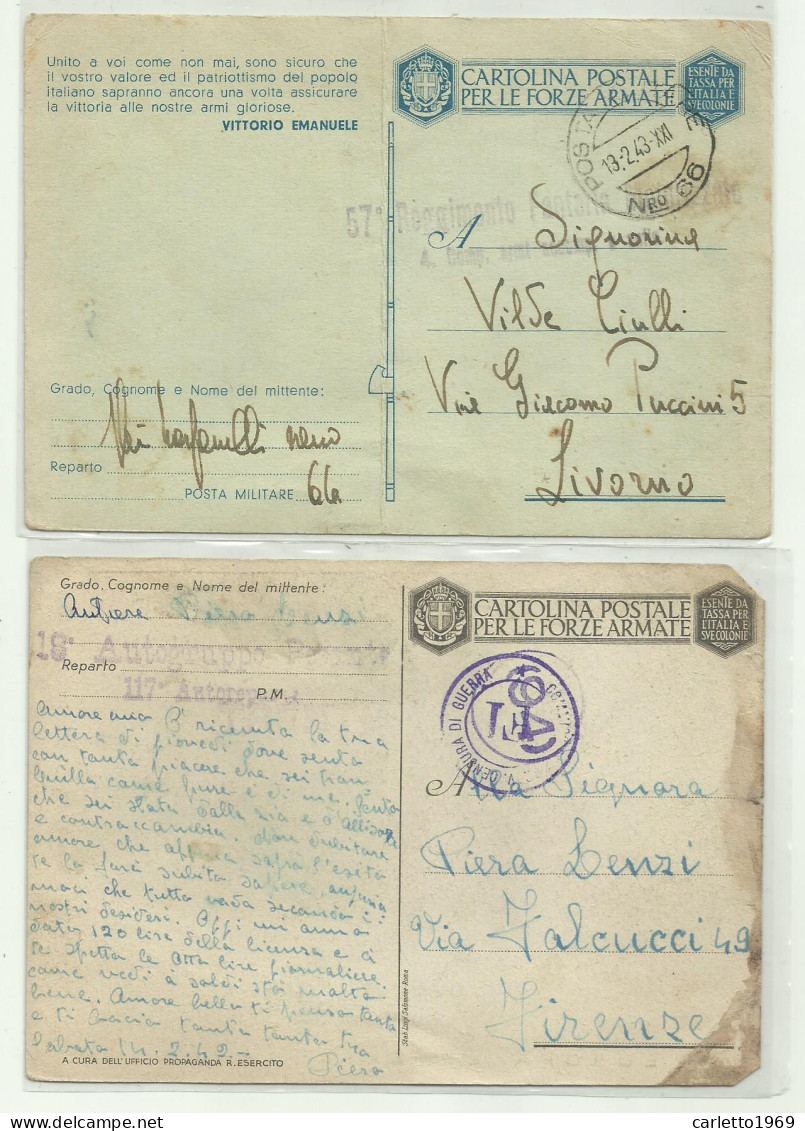 Unito a voi come non mai, sono sicuro che
il vostro valore ed il patriottismo del popolo
italiano sapranno ancora una volta assicurare
la vittoria alle nostre armi gloriose.
VITTORIO EMANUELE
CARTOLINA POSTALE
PER LE FORZE ARMATE
ESENTE DA
TASSA PER
L'ITALIA E
SVE COLONIE
POSTA
13·2·43-XXI
NRO 66
57° Reggimento Fanteria
A Signorina
Vilde Ciulli
Via Giacomo Puccini 5
Livorno
Grado, Cognome e Nome del mittente:
Reparto
POSTA MILITARE 66
Grado, Cognome e Nome del mittente:
Piero Lenzi
18° Autogruppo Pesante
Reparto
117° Autoreparto
P.M.
CARTOLINA POSTALE
PER LE FORZE ARMATE
ESENTE DA
TASSA PER
L'ITALIA E
SVE COLONIE
CENSURA DI GUERRA
Amore mio ò ricevuta la tua
lettera di giovedì dove sento
con tanto piacere che sei tran
quilla come pure è di me. Sento
che sei stata dalla zia e
e contraccambia. Non dubitare
amore, che appena saprò l'esito
te lo farò subito sapere, auguria
moci che tutto vada secondo i
nostri desideri. Oggi mi anno
dato 120 lire della licenza e ci
spetta le otto lire giornaliere.
come vedi a soldi stai molto
bene. Amore bello ti penso tanto
e ti bacia tanto tanto tuo
Sabato 14.2.42.-
Piero
A CURA DELL'UFFICIO PROPAGANDA R. ESERCITO
Stab. Luigi Salomone Roma
Alla Signora
Piera Lenzi
Via Falcucci 49
Firenze
carletto1969